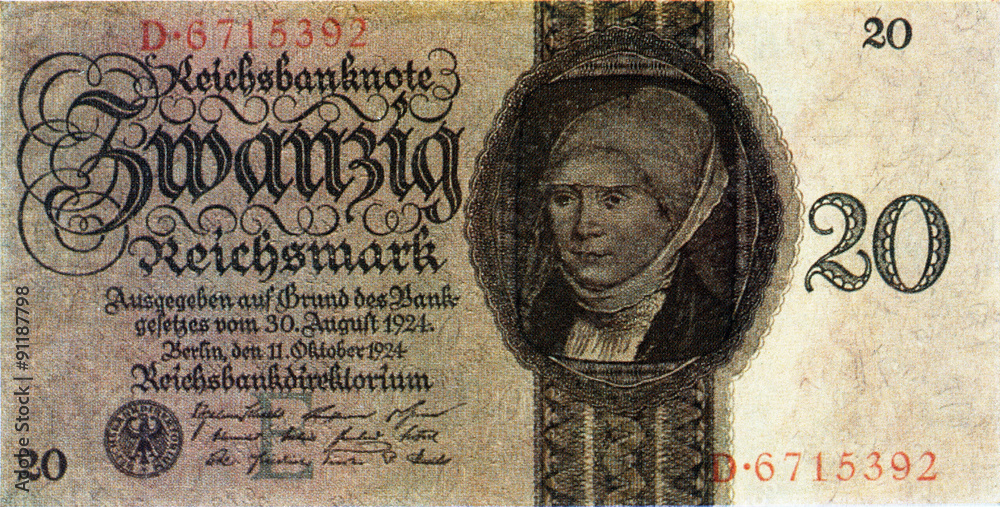 D·6715392
20
Reichsbanknote
Zwanzig
Reichsmark
20
Ausgegeben auf Grund des Bank-
gesetzes vom 30. August 1924.
Berlin, den 11. Oktober 1924
Reichsbankdirektorium
E
20
D·6715392
Adobe Stock | #91187798